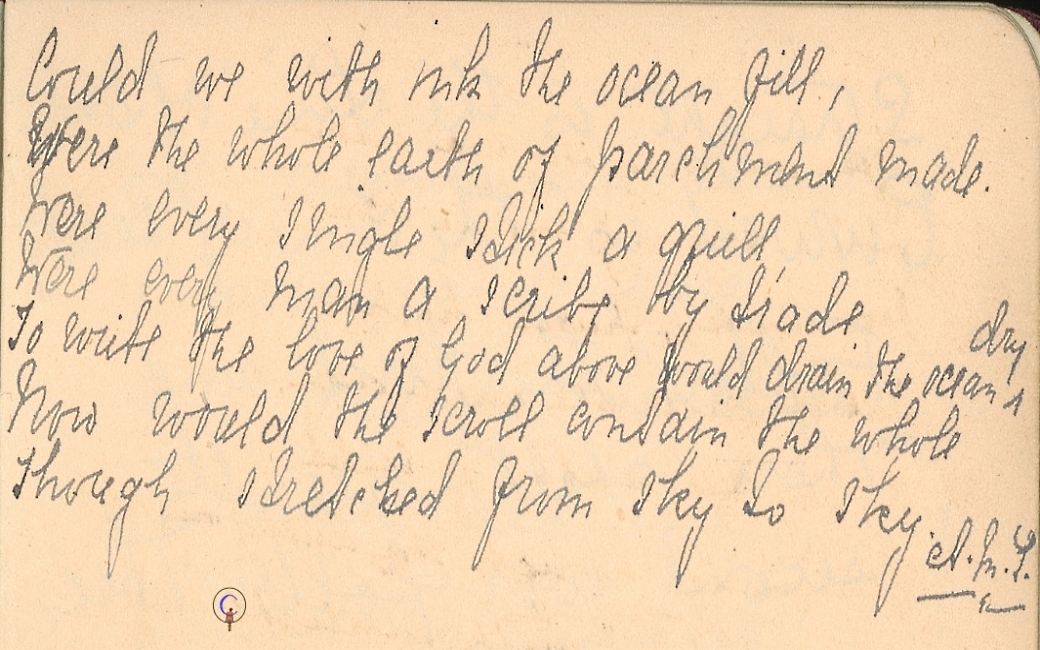 Could we with ink the ocean fill,
Were the whole earth of parchment made.
Were every single stick a quill,
Were every man a scribe by trade
To write the love of God above would drain the oceans dry
Now would the scroll contain the whole
Though stretched from sky to sky.